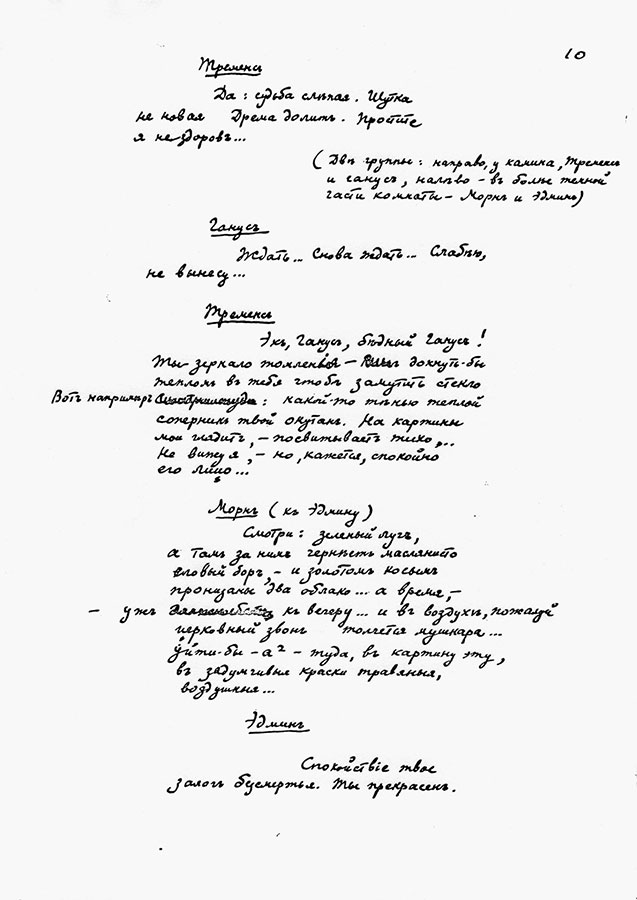 10
Тременсъ
Да: судьба слѣпая. Шутка
не новая Дрема долитъ. Простите
я не здоровъ...
(Двѣ группы: направо, у камина, Тременсъ
и Ганусъ, налѣво – въ болѣе темной
части комнаты – Морнъ и Эдминъ)
Ганусъ
Ждать... Снова ждать... Слабѣю,
не вынесу...
Тременсъ
Эхъ, Ганусъ, бѣдный Ганусъ!
Ты зеркало томленья – дохнуть-бы
тепломъ въ тебя чтобъ замутить стекло
Вотъ напримѣръ: какой-то тѣнью теплой
соперникъ твой окутанъ. На картины
мои глядитъ, – посвитываетъ тихо,..
Не вижу я, – но, кажется, спокойно
его лицо...
Морнъ (къ Эдмину)
Смотри: зеленый лугъ,
а тамъ за нимъ чернѣетъ маслянисто
еловый боръ, – и золотомъ косымъ
пронизаны два облака... а время, –
– ужъ къ вечеру... и въ воздухѣ, пожалуй
церковный звонъ толчется мушкара...
Уйти-бы – а? – туда, въ картину эту,
въ задумчивыя краски травяныя,
воздушныя...
Эдминъ
Спокойствіе твое
залогъ безсмертья. Ты прекрасенъ.